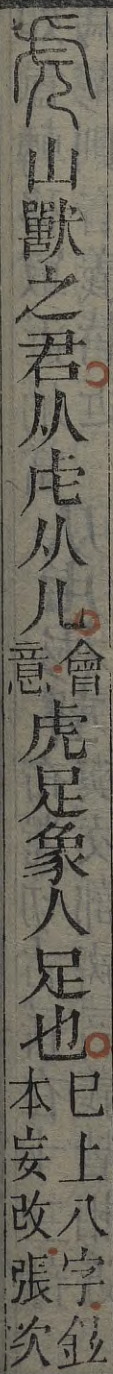 虎山獸之君从虍从儿會意虎足象人足也巳上八字鉉本妄改張次